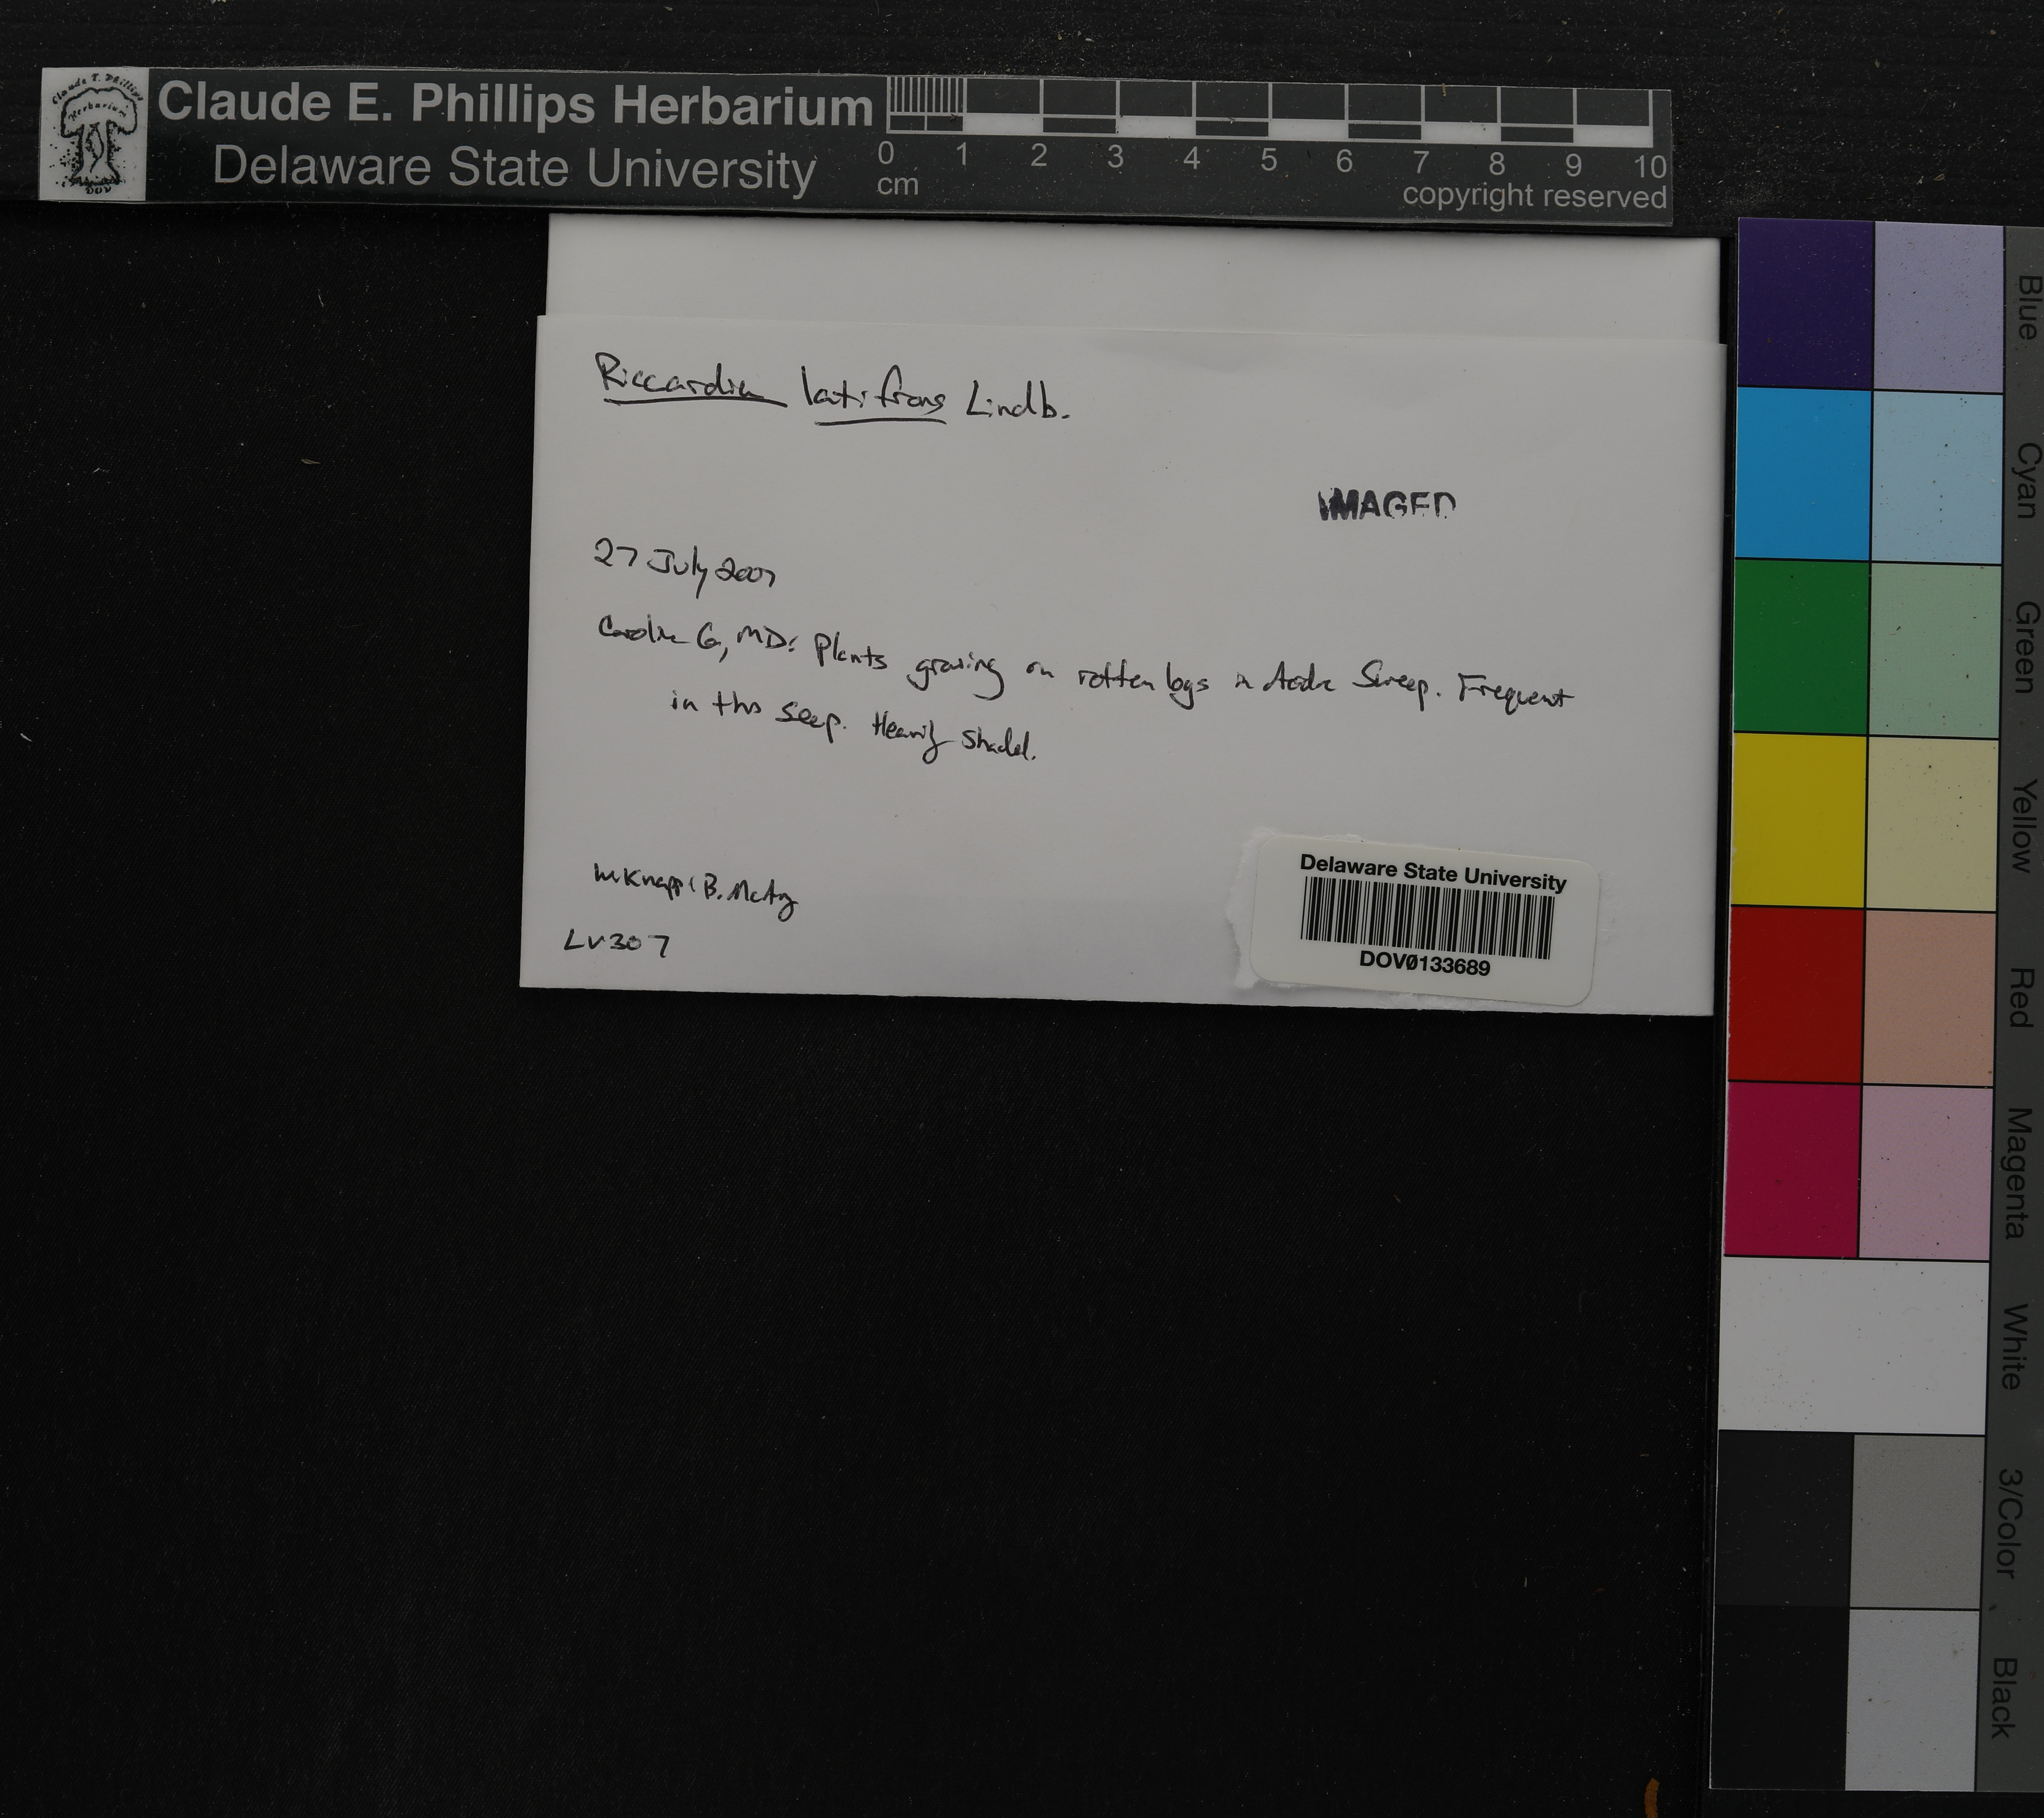 Claude E. Phillips Herbarium
Delaware State University
0 1 2 3 4 5 6 7 8 9 10
cm
copyright reserved
Riccardia latifrons Lindb.
IMAGED
27 July 2007
Caroline Co, MD: Plants growing on rotten logs in Acidic Seep. Frequent
in this seep. Heavily shaded.
W Knapp & B. McAvoy
LV307
Delaware State University
DOV0133689
Blue
Cyan
Green
Yellow
Red
Magenta
White
3/Color
Black